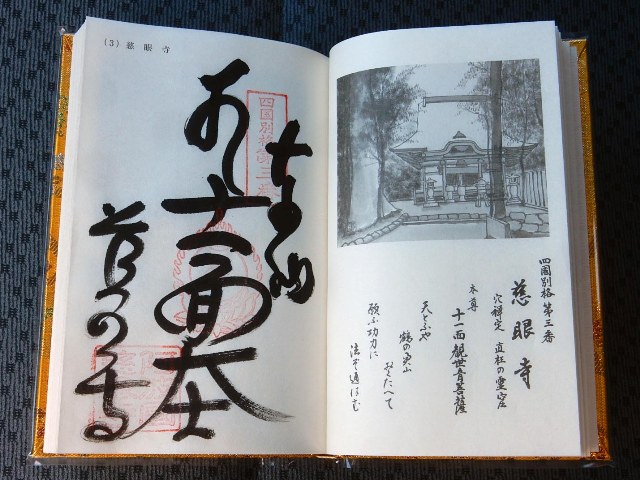 (3) 慈眼寺
四国別格第三番
奉納
十一面大士
慈眼寺
四国別格第三番
慈眼寺
穴禅定 の霊窟
本尊
十一面観世音菩薩
天とふや
鶴の奥山
おくたへて
願ふ功力に
法ぞ通はむ